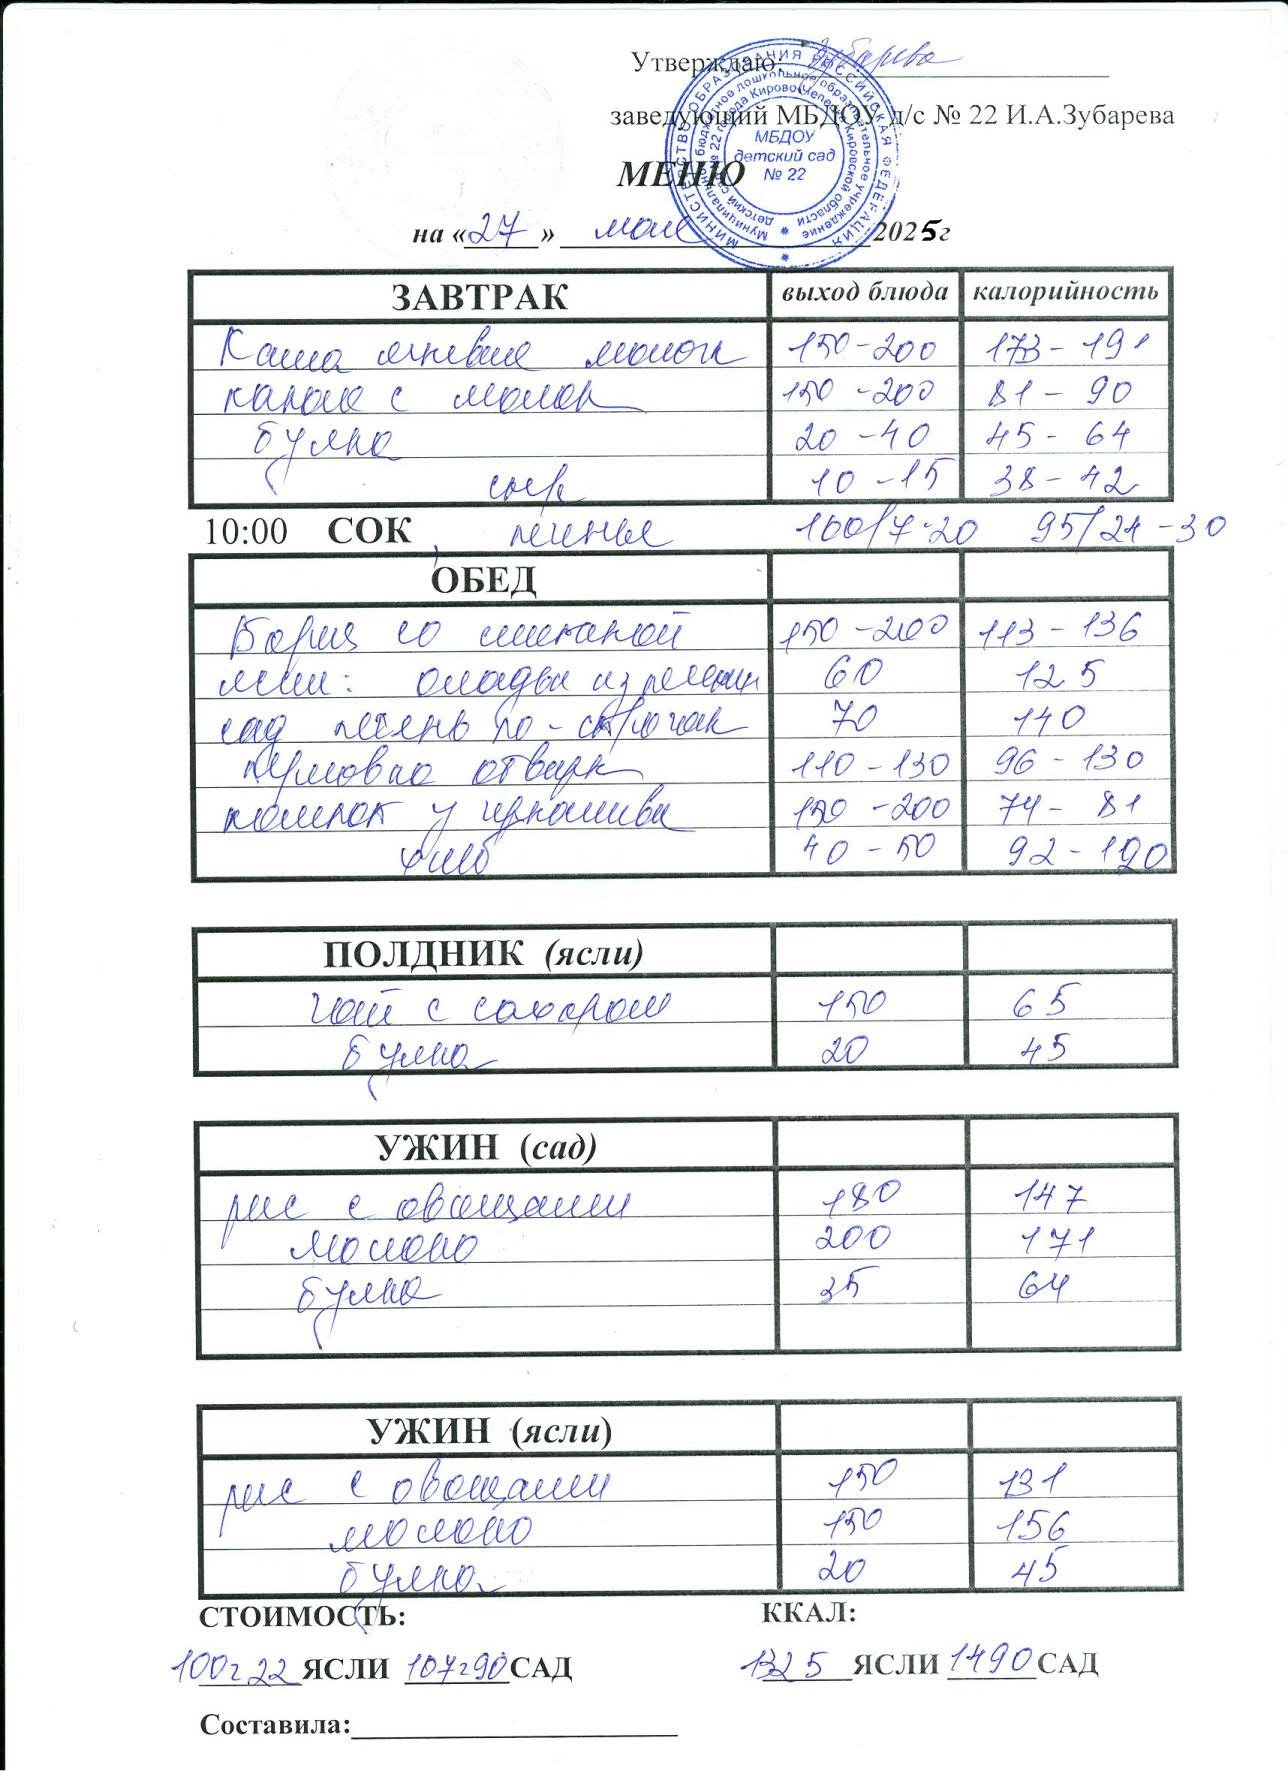 Утверждаю: Зубарева
заведующий МБДОУ д/с № 22 И.А.Зубарева
МИНИСТЕРСТВО ОБРАЗОВАНИЯ РОССИЙСКАЯ ФЕДЕРАЦИЯ
МБДОУ
детский сад
№ 22
МЕНЮ
на «27» мая 2025г
ЗАВТРАК выход блюда калорийность
Каша ячневая молочн 150-200 173-191
какао с молок 150-200 81-90
булка 20-40 45-64
сыр 10-15 38-42
10:00 СОК, печенье 100/7-20 95/24-30
ОБЕД
Борщ со сметаной 150-200 113-136
ясли: оладьи из печени 60 125
сад печень по-строган 70 140
перловка отварн 110-130 96-130
компот 150-200 74-81
хлеб 40-50 92-120
ПОЛДНИК (ясли)
чай с сахаром 150 65
булка 20 45
УЖИН (сад)
рис с овощами 180 147
молоко 200 171
булка 35 64
УЖИН (ясли)
рис с овощами 150 131
молоко 150 156
булка 20 45
СТОИМОСТЬ: ККАЛ:
100г22 ЯСЛИ 107г90 САД 1325 ЯСЛИ 1490 САД
Составила: